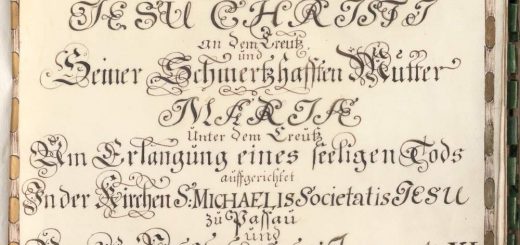 JESU CHRISTI
an dem Creutz
und
Seiner Schmertzhafften Mutter
MARIÆ
Unter dem Creutz
Um Erlangung eines seeligen Tods
auffgerichtet
In der Kirchen S. MICHAELIS Societatis JESU
zu Passau
und